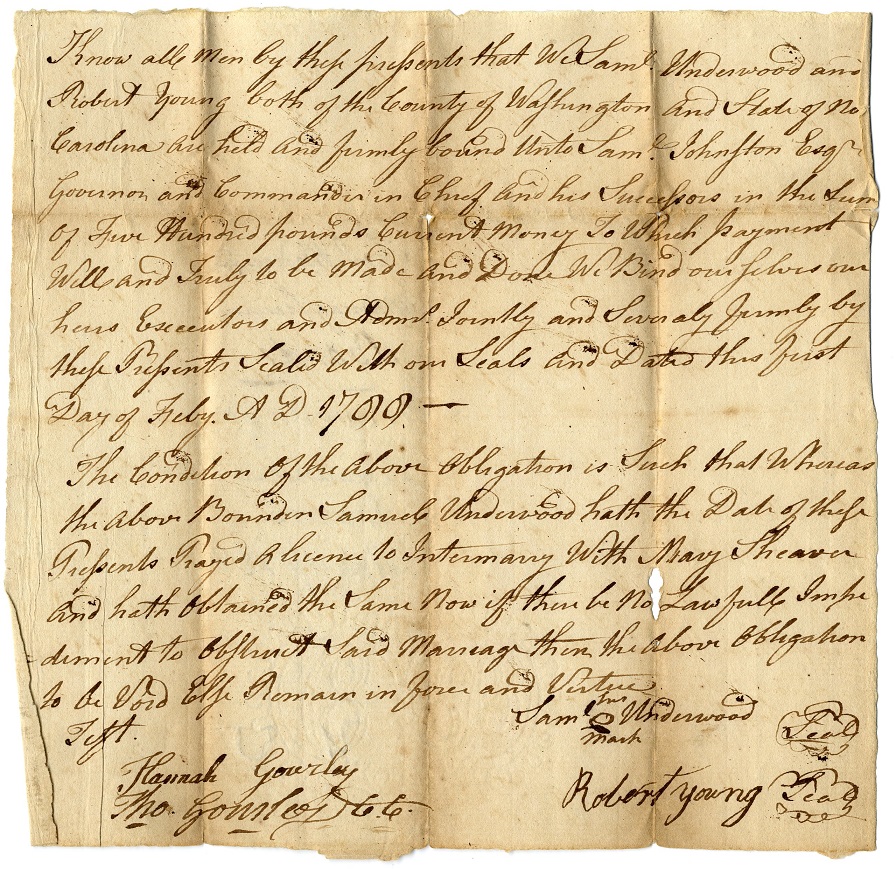 Know all Men by these presents that We Saml. Underwood and
Robert Young both of the County of Washington and State of No
Carolina are held and firmly bound Unto Saml. Johnston Esqr
Governor and Commander in Chief and his Successors in the Sum
Of Five Hundred pounds Current Money To Which payment
Well and Truly to be Made and Done We Bind our selves our
heirs Executors and Admrs. Jointly and Severaly firmly by
these Presents Sealed With our Seals and Dated this first
Day of Feby. A D. 1788. —
The Condition Of the Above Obligation is Such that Whereas
the Above Bounden Samuel Underwood hath the Date of these
Presents Prayed A licence to Intermarry With Mary Sheaver
And hath Obtained the Same Now if there be No Lawfull Impe
diment to Obstruct Said Marriage then the Above Obligation
to be Void Else Remain in force and Virtue
his
Saml. Underwood Seal
mark
Test.
Hannah Gourley
Robert Young Seal
Tho. Gourley D C C.